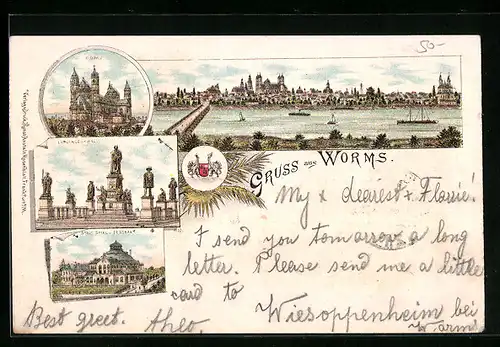 50-
DOM
LUTHERDENKMAL
GRUSS aus WORMS.
My x dearest x Florrie!
I send you tomorrow a long
letter. Please send me a little
card to Wiesoppenheim bei
Worms
Best greet. theo.